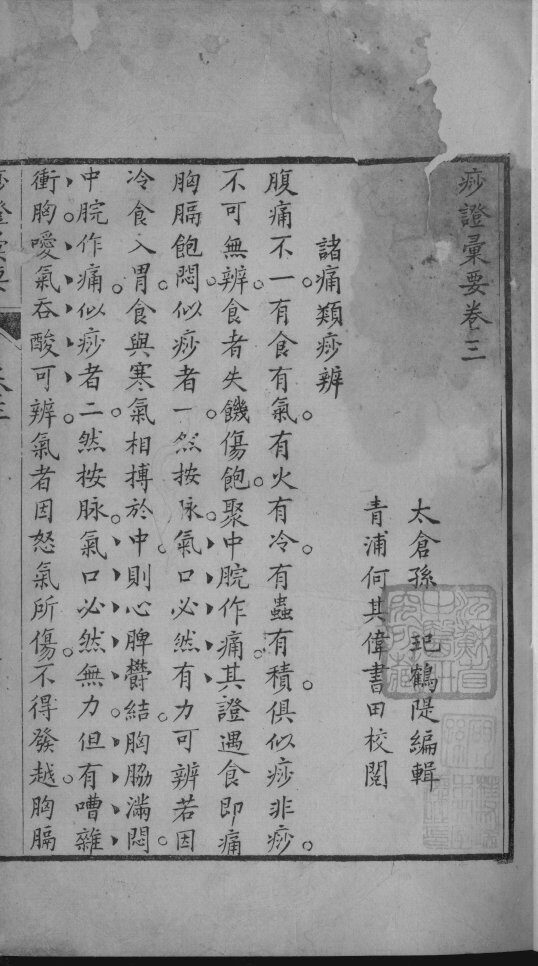 痧證彙要卷三
太倉孫 玘鶴隄編輯
青浦何其偉書田校閱
諸痛類痧辨
腹痛不一有食有氣有火有冷有蟲有積俱似痧非痧
不可無辨食者失饑傷飽聚中脘作痛其證遇食即痛
胸膈飽悶似痧者一然按脉氣口必然有力可辨若因
冷食入胃食與寒氣相搏於中則心脾欝結胸脇滿悶
中脘作痛似痧者二然按脉氣口必然無力但有嘈雜
衝胸噯氣吞酸可辨氣者因怒氣所傷不得發越胸膈